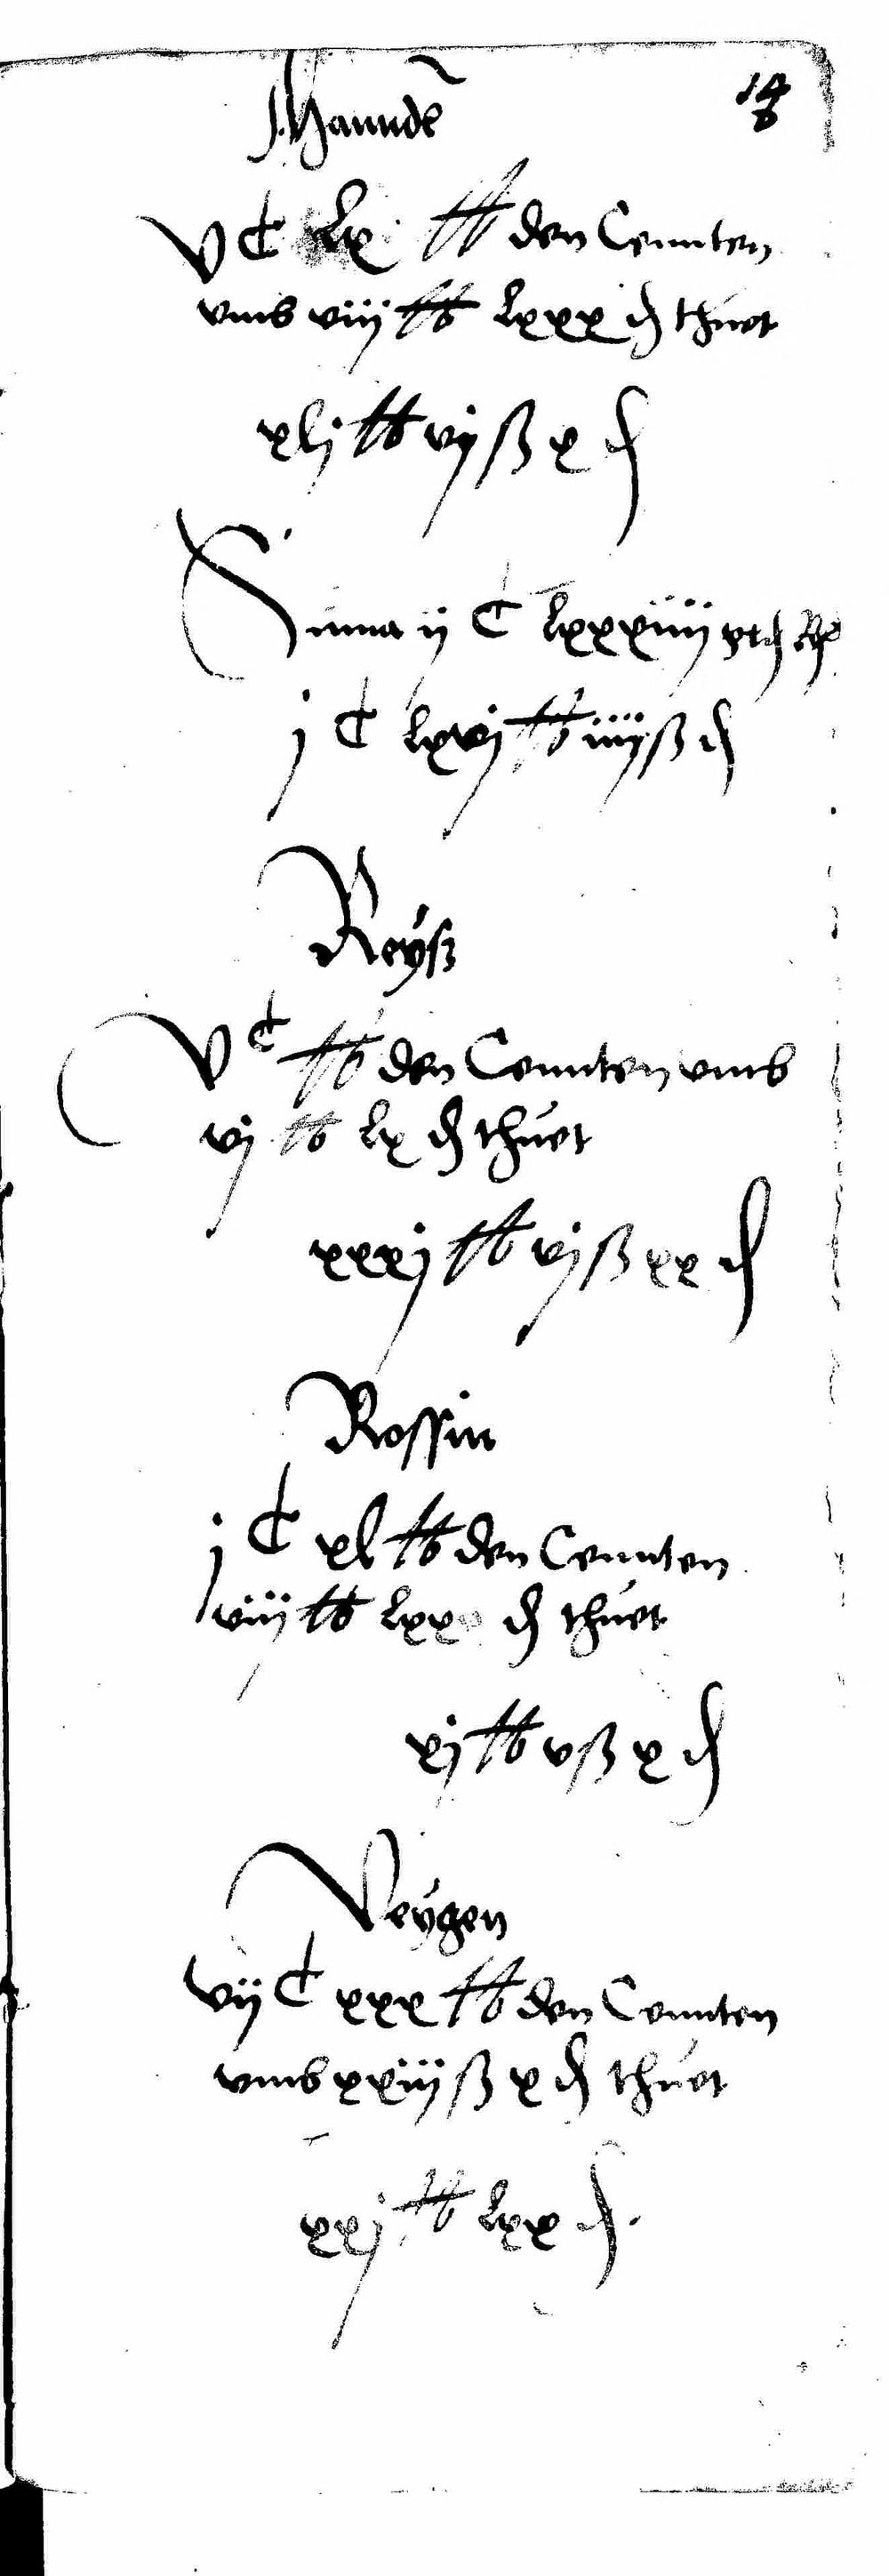 Manndl
14
vC lx lb den Cennten
umb viij lb lxxx d thuet
xlj lb vij ß x d
Suma ij C lxxxiiij
j C lxvj lb iiij ß d
Reyß
vC lb den Cennten umb
vj lb lx d thuet
xxxj lb vj ß xx d
Rossin
j C xl lb den Cennten
viij lb lxx d thuet
xj lb v ß x d
Veygen
vij C xxx lb den Cennten
umb xxiij ß x d thuet
xxj lb lxx d.